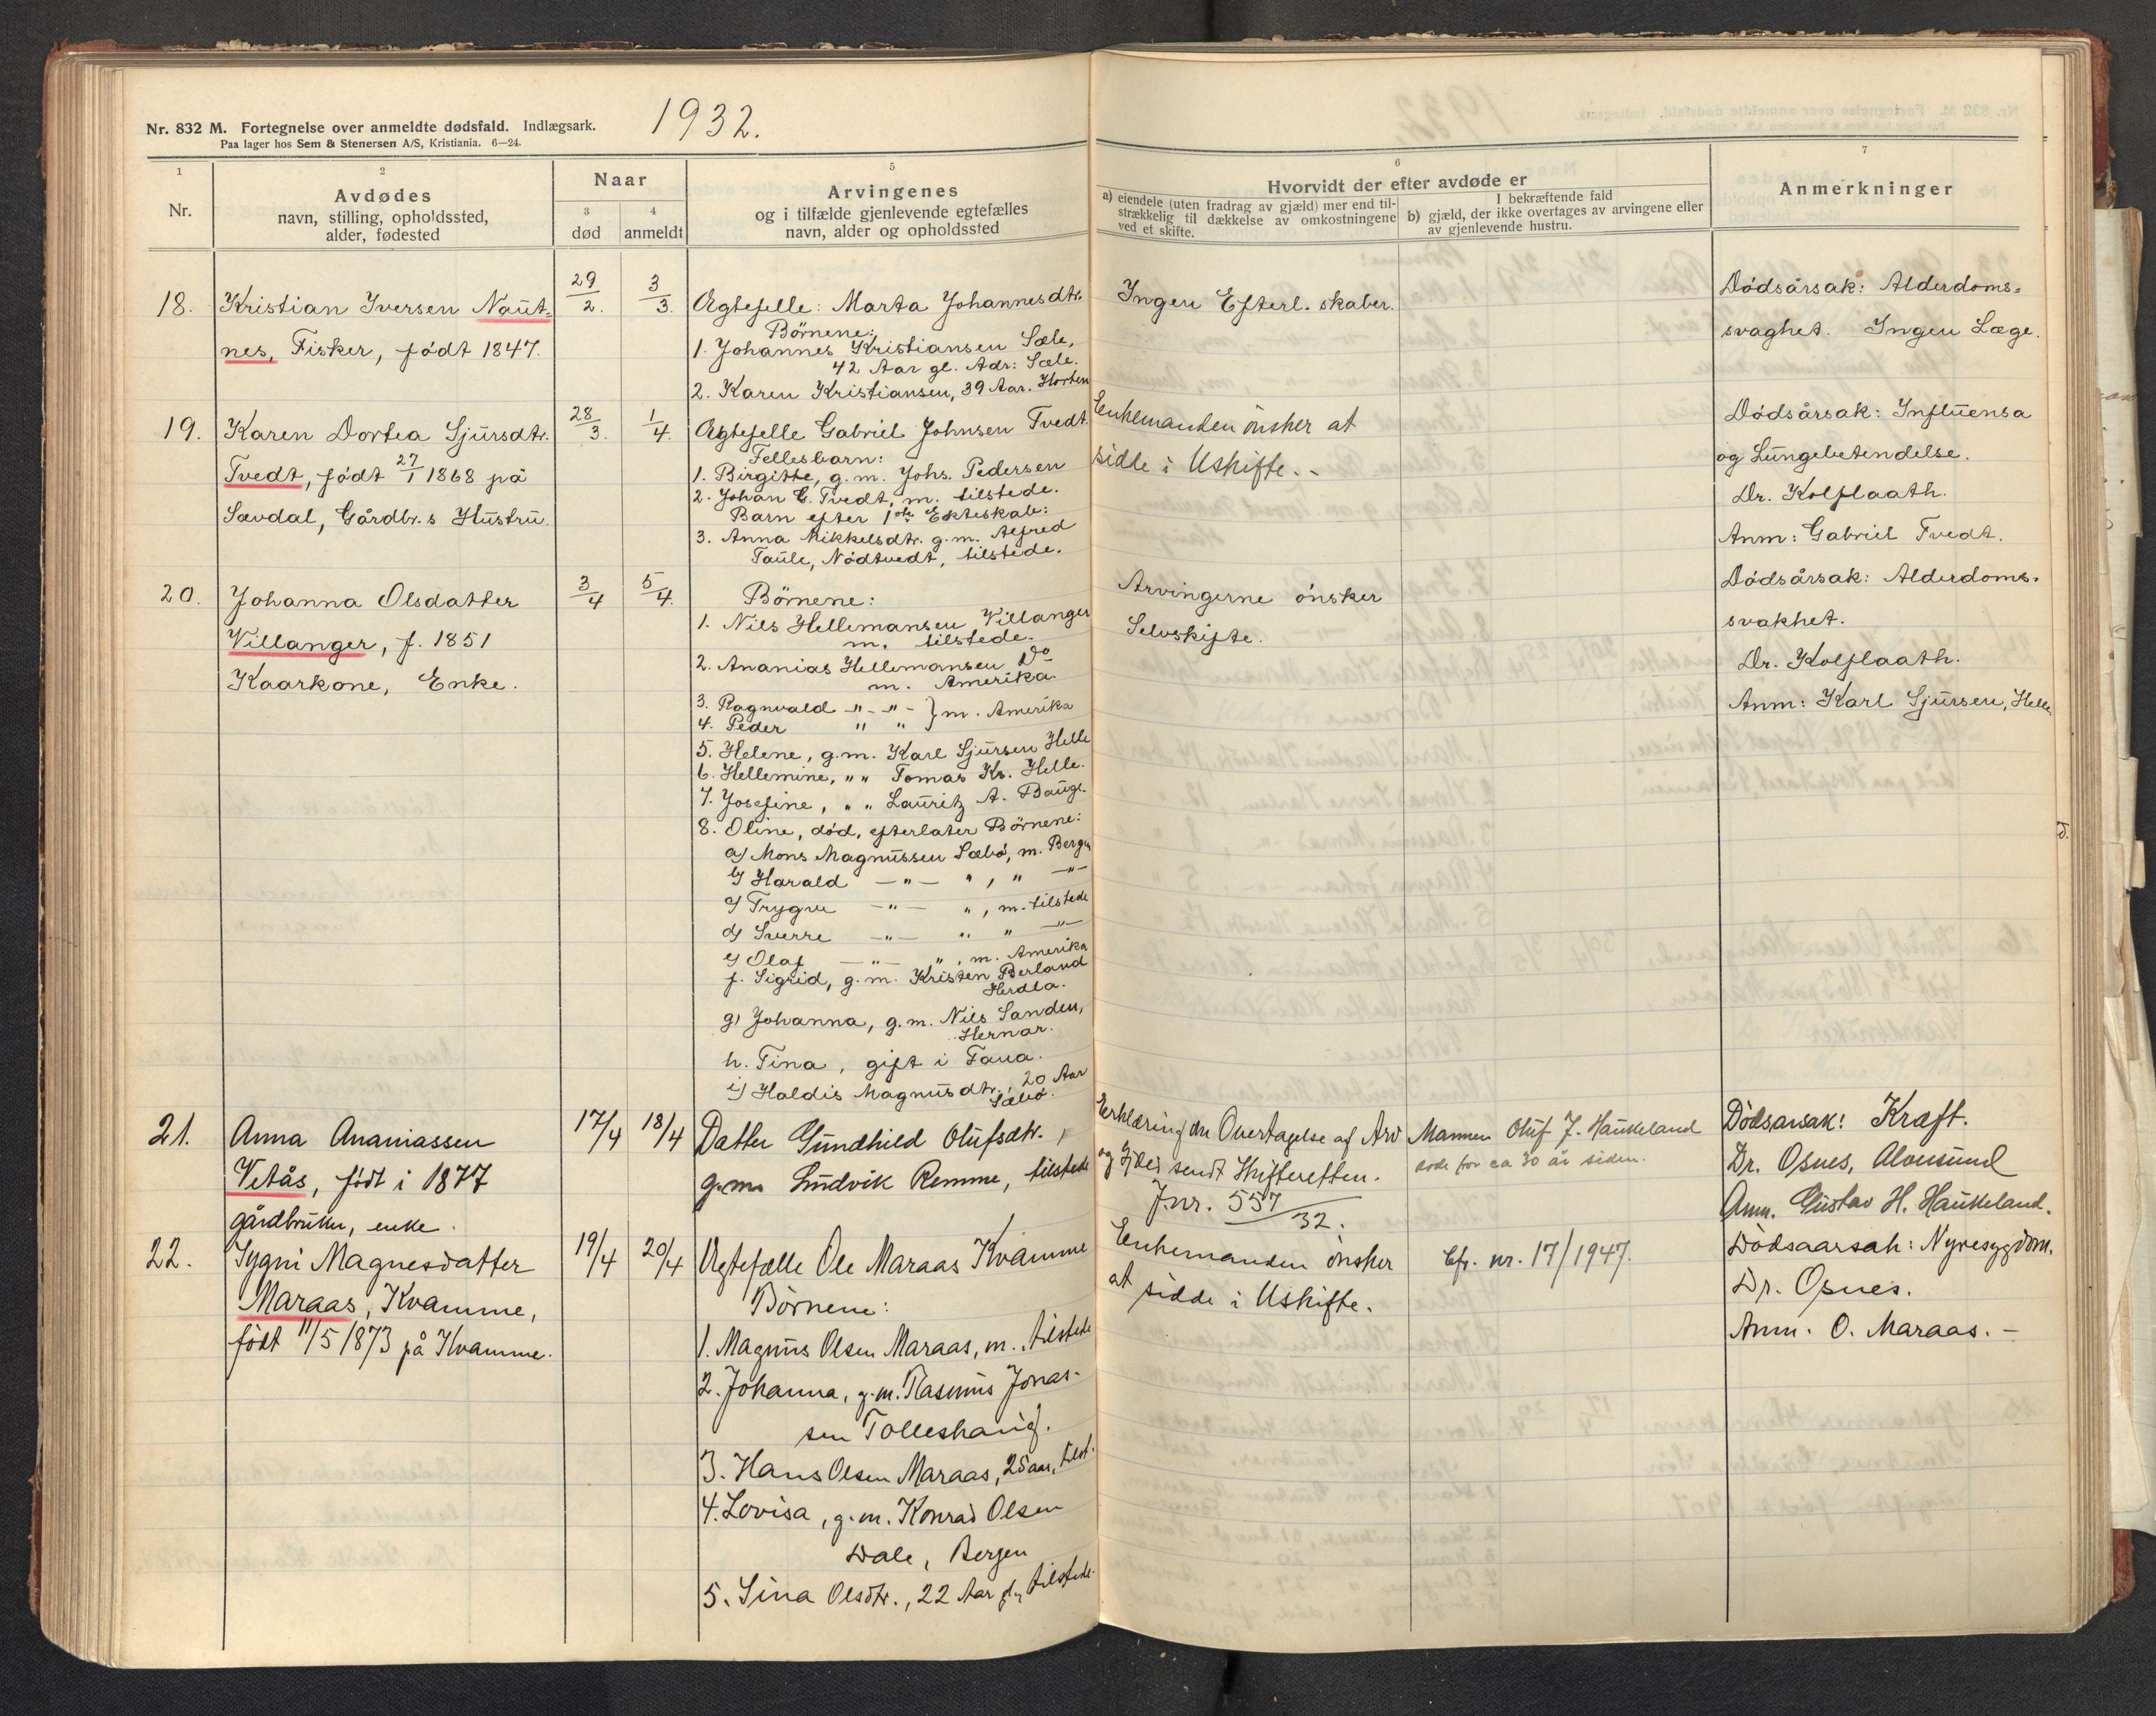 Nr. 832 M. Fortegnelse over anmeldte dødsfald. Indlægsark.
Paa lager hos Sem & Stenersen A/S, Kristiania. 6—24.
1932.
1
Nr.
2
Avdødes
navn, stilling, opholdssted,
alder, fødested
Naar
3
død
4
anmeldt
5
Arvingenes
og i tilfælde gjenlevende egtefælles
navn, alder og opholdssted
6
Hvorvidt der efter avdøde er
a) eiendele (uten fradrag av gjæld) mer end til-
strækkelig til dækkelse av omkostningene
ved et skifte.
I bekræftende fald
b) gjæld, der ikke overtages av arvingene eller
av gjenlevende hustru.
7
Anmerkninger
18.
Kristian Iversen Naut-
nes, Fisker, født 1847.
29/2.
3/3.
Ægtefelle: Marta Johannesdtr.
Børnene:
1. Johannes Kristiansen Sæle,
42 Aar gl. Adr: Sæle.
2. Karen Kristiansen, 39 Aar. Horten
Ingen Efterl. skaber.
Dødsårsak: Alderdoms-
svaghet. Ingen Læge.
19.
Karen Dortea Sjursdtr.
Tvedt, født 27/1 1868 på
Sævdal, Gårdbr.s Hustru.
28/3.
1/4.
Ægtefelle Gabriel Johnsen Tvedt.
Fellesbarn:
1. Birgitte, g.m. Johs. Pedersen
2. Johan G. Tvedt, m. tilstede.
Barn efter 1ste Ekteskab:
3. Anna Mikkelsdtr. g.m. Alfred
Taule, Nødtvedt, tilstede.
Enkemanden ønsker at
sidde i Uskifte. -
Dødsårsak: Influensa
og Lungebetendelse.
Dr. Kolflaath.
Anm: Gabriel Tvedt.
20.
Johanna Olsdatter
Villanger, f. 1851
Kaarkone, Enke.
3/4
5/4.
Børnene:
1. Nils Hellemansen Villanger
m. tilstede.
2. Ananias Hellemansen Do
m. Amerika
3. Ragnvald -"- -"- } m. Amerika
4. Peder " "
5. Helene, g.m. Karl Sjursen Helle
6. Hellemine, " " Tomas Kr. Helle.
7. Josefine, " " Lauritz A. Bauge.
8. Oline, død, efterlater Børnene:
a) Mons Magnussen Sæbø, m. Bergen
b) Harald —"— ", " —"—
c) Trygve —"— ", m. tilstede
d) Sverre —"— " " —"—
e) Olaf —"— ", m. Amerika
f. Sigrid, g.m. Kristen Berland
Herdla.
g) Johanna, g.m. Nils Sanden,
Hernar.
h. Tina, gift i Fana.
i) Haldis Magnusdtr., 20 Aar
Sæbø.
Arvingerne ønsker
Selvskifte.
Dødsårsak: Alderdoms-
svakhet.
Dr. Kolflaath.
Anm: Karl Sjursen, Helle.
21.
Anna Ananiassen
Vetås, født i 1877
gårdbruker, enke.
17/4
18/4
Datter Gundhild Olufsdtr.,
g.m. Ludvik Remme, tilstede
Erklæring om Overtagelse af Arv
og Gjæld sendt Skifteretten.
Jnr. 557/32.
Mannen Oluf J. Haukeland
døde for ca 30 år siden.
Dødsarsak: Kræft.
Dr. Osnes, Alversund
Anm. Gustav H. Haukeland.
22.
Sygni Magnesdatter
Maraas, Kvamme,
født 11/5 1873 på Kvamme.
19/4
20/4
Ægtefælle Ole Maraas Kvamme
Børnene:
1. Magnus Olsen Maraas, m., tilstede
2. Johanna, g.m. Rasmus Jonas-
sen Tolleshaug.
3. Hans Olsen Maraas, 25 aar, tilst.
4. Lovisa, g.m. Konrad Olsen
Dale, Bergen
5. Sina Olsdtr., 22 Aar gl, tilstede.
Enkemanden ønsker
at sidde i Uskifte.
Cfr. nr. 17/1947.
Dødsaarsak: Nyresygdom.
Dr. Osnes.
Anm. O. Maraas. -